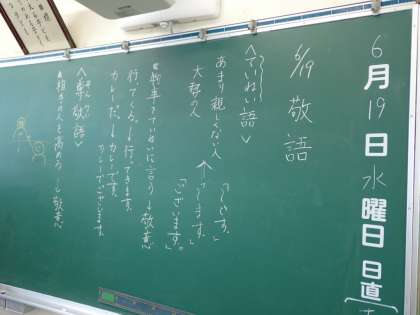 6月19日水曜日 日直
6/19 敬語
<ていねい語>
あまり親しくない人
大勢の人
「〜です。」
「〜ます。」
「ございます。」
物事をていねいに言う→敬意
行ってくる。→行ってきます。
カレーだ。→カレーです。
カレーでございます。
<尊敬語>
相手の人を高める→敬意